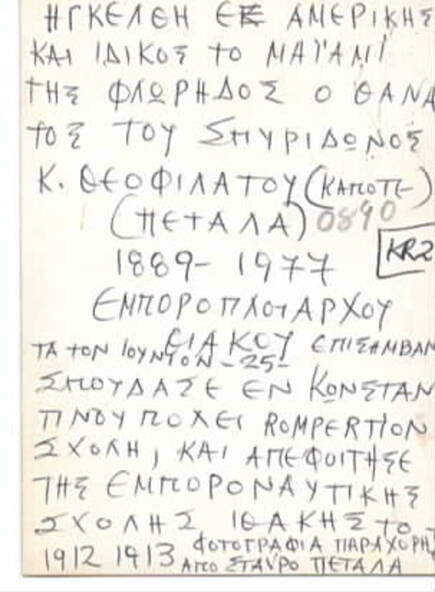 ΗΓΚΕΛΘΗ ΕΚ ΑΜΕΡΙΚΗΣ
ΚΑΙ ΙΔΙΚΟΣ ΤΟ ΜΑΪΑΜΙ
ΤΗΣ ΦΛΩΡΗΔΟΣ Ο ΘΑΝΑ
ΤΟΣ ΤΟΥ ΣΠΥΡΙΔΩΝΟΣ
Κ. ΘΕΟΦΙΛΑΤΟΥ (ΚΑΠΟΤΕ-)
(ΠΕΤΑΛΑ) 0890
KR2
1889-1977
ΕΜΠΟΡΟΠΛΟΙΑΡΧΟΥ
ΙΟΥΝΙΟΝ -25-
ΣΠΟΥΔΑΣΕ ΕΝ ΚΩΝΣΤΑΝ
ΤΙΝΟΥΠΟΛΕΙ ROMPERTION
ΣΧΟΛΗ, ΚΑΙ ΑΠΕΦΟΙΤΗΣΕ
ΤΗΣ ΕΜΠΟΡΟΝΑΥΤΙΚΗΣ
ΣΧΟΛΗΣ ΙΘΑΚΗΣ ΤΟ
1912 1913 ΦΩΤΟΓΡΑΦΙΑ ΠΑΡΑΧΩΡΗ
ΑΠΟ ΣΤΑΥΡΟ ΠΕΤΑΛΑ